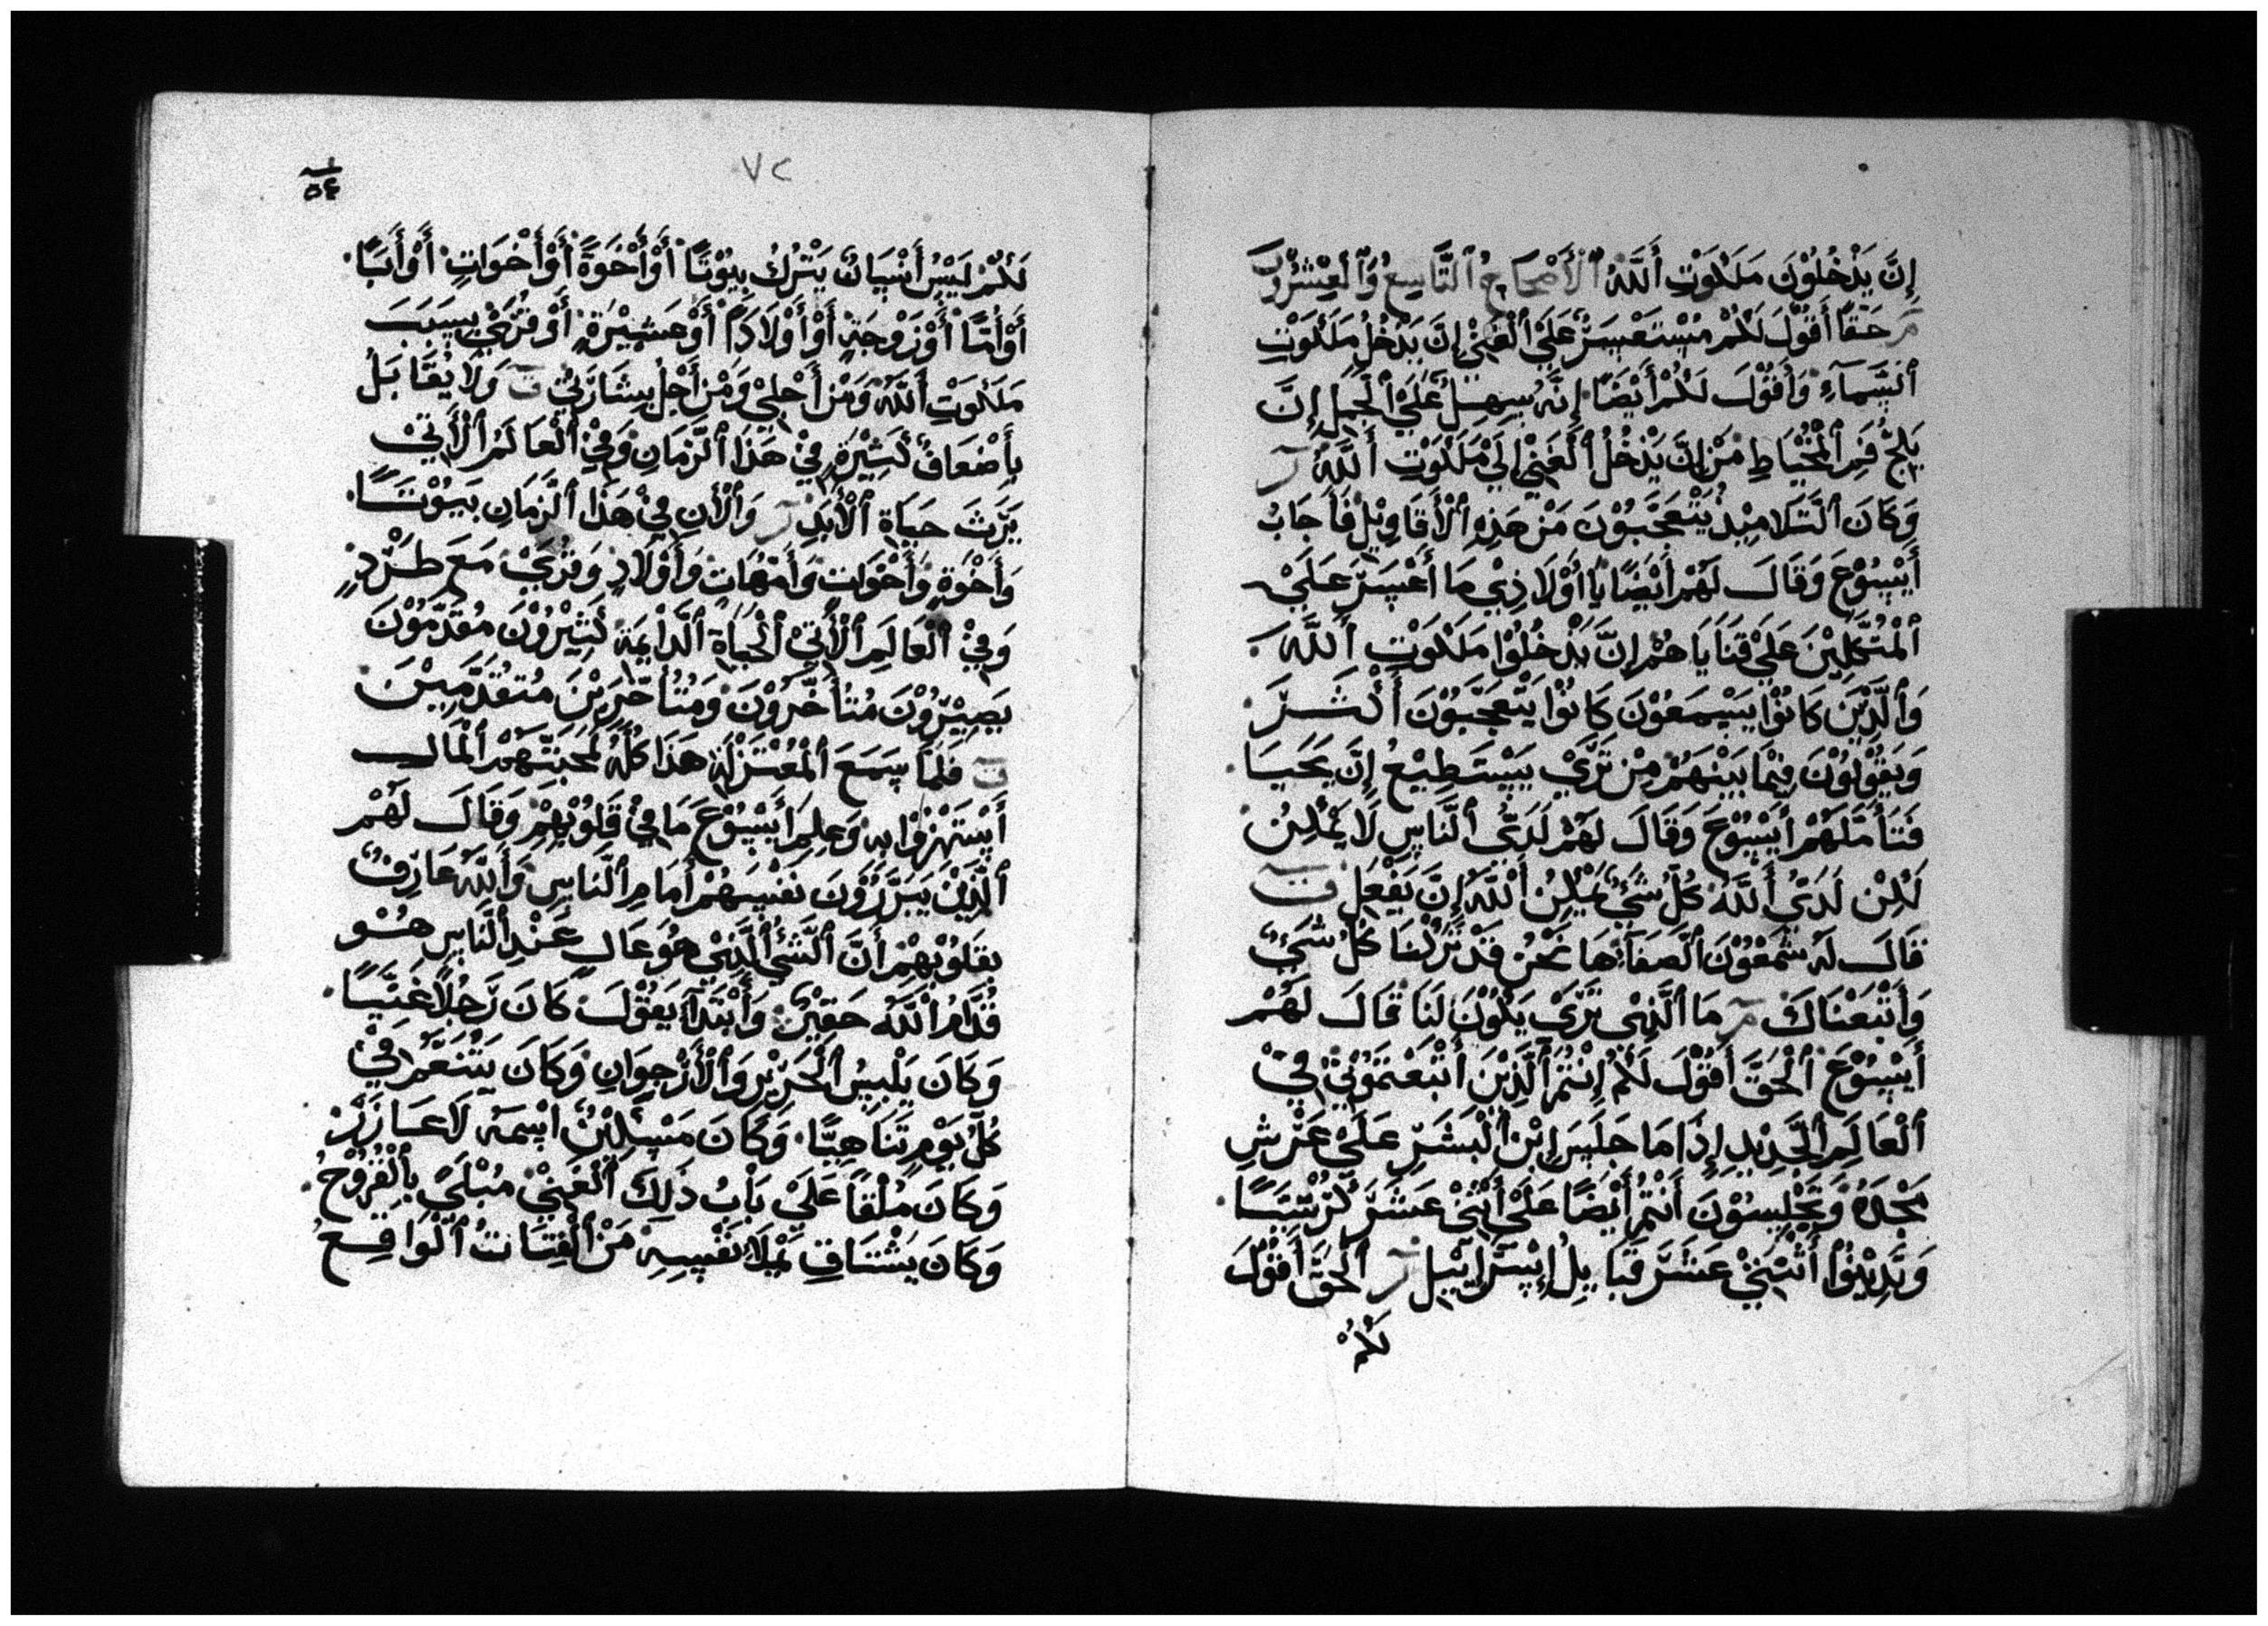 إِنَّ يَدْخُلُوْنَ مَلَكُوْتِ أَللَّهُ ٱلْأَصْحَاحُ ٱلتَّاسِعُ وَٱلْعِشْرُوْنَ
مر حَقًا أَقُوْلَ لَكُمْ مُسْتَعْسَرٌ عَلَيْ ٱلْغَنِيْ إِنَّ يَدْخُلُ مَلَكُوْتِ
ٱلسَّمَآءِ وَأَقُوْلَ لَكُمْ أَيْضًا إِنَّهُ سِهِلَ عَلَيْ ٱلْجَمِلِ إِنَّ
يَلِجُّ فَمِ ٱلْمُخْيَاطِ مَنْ إِنَّ يَدْخُلُ ٱلْغَنِيْ إِلَيْ مَلَكُوْتِ أَللَّهُ ر
وَكَانَ ٱلتَّلَامِيْذُ يَتَعَجَّبُوْنَ مَنْ هَذِهِ ٱلْأَقَاوِيْلِ فَأَجَابُ
أَيْسُوْعَ وَقَالَ لَهُمْ أَيْضًا يَا أَوْلَادِيْ مَا أَعْسَرَ عَلَيْ
ٱلْمُتَّكِلِيْنَ عَلَيْ قَنَايَاهُمْ إِنَّ يَدْخُلُوْا مَلَكُوْتِ أَللَّهُ
وَٱلَّذِيْنَ كَانُوْا يَسْمَعُوْنَ كَانُوْا يَتَعَجَّبُوْنَ أَكْثَرَ
وَيَقُوْلُوْنَ فِيْمَا بَيْنَهُمْ مِنْ تَرَيْ يَسْتَطِيْعُ إِنَّ يَحْيَا
فَتَأَمَّلَهُمْ أَيْسُوْعَ وَقَالَ لَهُمْ لَدَيُّ ٱلنَّاسِ لَا يُمْكِنُ
لَكِنْ لَدَيُّ أَللَّهُ كُلُّ شَيْءٌ يُمْكِنُ أَللَّهُ إِنَّ يَفْعَلِ ت
قَالَ لَهُ شَمَعُوْنَ ٱلصَفَا هَا نَحْنُ قَدْ تَرَكْنَا كُلُّ شَيْءٌ
وَأَتْبَعْنَاكَ مر مَا ٱلَّذِيْ تَرَيْ يَكُوْنَ لَنَا قَالَ لَهُمْ
أَيْسُوْعَ ٱلْحَقَّ أَقُوْلَ لَكُمْ إِنْتُمْ ٱلَّذِيْنَ أَتْبَعْتَمُوْنِيْ فِيْ
ٱلْعَالَمِ ٱلْجَدِيْدِ إِذَا مَا جَلَسَ إِبْنُ ٱلْبَشَرِ عَلَيْ عَرْشِ
مَجْدَهُ وَتَجْلِسُوْنَ أَنْتُمْ أَيْضًا عَلَيْ أَثْنَيْ عَشَرَ كُرْسِيًّا
وَتَدِيْنُوْا أَثْنَيْ عَشَرَ قَبَايِلُ إِسْرَايِيْلَ ر ٱلْحَقَّ أَقُوْلَ
لَكُمْ
٧٢
٥٤
لَكُمْ لَيْسُ أَنْسَانٌ يَتْرُكُ بِيُوْتًا أَوْ أَخْوَةً أَوْ أَخْوَاتٍ أَوْ أَبًا
أَوْ أُمًّا أَوْ زَوْجَةٍ أَوْ أَوْلَادَمْ أَوْ عَشِيْرَةٍ أَوْ قُرَيْ بِسَبَبَ
مَلَكُوْتِ أَللَّهُ وَمَنْ أَجْلِيْ وَمَنْ أَجْلِ بِشَارَتِيْ ت وَلَا يُقَابَلُ
بِأَضْعَافٌ كَثِيْرَةٍ فِيْ هَذَا ٱلزَّمَانِ وَفِيْ ٱلْعَالَمُ ٱلْأَتِيْ
يَرَثَ حَيَاةِ ٱلْأَبَدِ ر وَٱلْأَنِ فِيْ هَذَا ٱلزَّمَانِ بَيُوْتًا
وَأَخْوَةٍ وَأَخْوَاتٍ وَأَمْهَاتٍ وَأَوْلَادٍ وَقُرَيْ مَعَ طَرْدٍ
وَفِيْ ٱلْعَالَمِ ٱلْأَتِيْ ٱلْحَيَاةِ ٱلدَّايِمَةِ كَثِيْرُوْنَ مُقَدَّمُوْنَ
يَصِيْرُوْنَ مُتُأَخَّرُوْنَ وَمُتُأَخَّرِيْنَ مُتَقَدَّمِيْنَ
ت فَلَمَا سَمَعَ ٱلْمُعْتَزْلَةِ هَذَا كُلُّهُ لَمَحَبَتَهُمْ ٱلْمَالِ
أَسْتَهْزَوْا بِهِ وَعِلِمَ أَيْسُوْعَ مَا فِيْ قَلُوْبِهِمْ وَقَالَ لَهُمْ
ٱلَّذِيْنَ يَبَرَّرُوْنَ نَفْسَهُمْ أَمَامِ ٱلنَّاسِ وَأَللَّهُ عَارِفٌ
بِقَلُوْبِهِمْ أَنَّ ٱلشَّيْ ٱلَّذِيْ هُوَ عَالِ عَنْدِ ٱلنَّاسِ هُوَ
قُدَّامُ أَللَّهُ حَقِيْرٌ وَأَبْتَدَأَ يَقُوْلَ كَانَ رَجُلًا غَنِيًّا
وَكَانَ يَلْبِسُ ٱلْحَرِيْرِ وَٱلْأَرْجِوَانِ وَكَانَ يَتَنَعَّمُ فِيْ
كُلُّ يَوْمٍ تَنَاهِيًّا وَكَانَ مَسْكِيْنٌ اسْمَهُ لَاعَازَرْ
وَكَانَ مُلْقًا عَلَيْ بَابُ ذَلِكَ ٱلْغَنِيْ مُبْلَيً بِٱلْقُرُوْحُ
وَكَانَ يَشْتَاقِ يَمْلَا نَفْسِهِ مَنْ ٱلْفِتَاتُ ٱلْوَاقِعُ